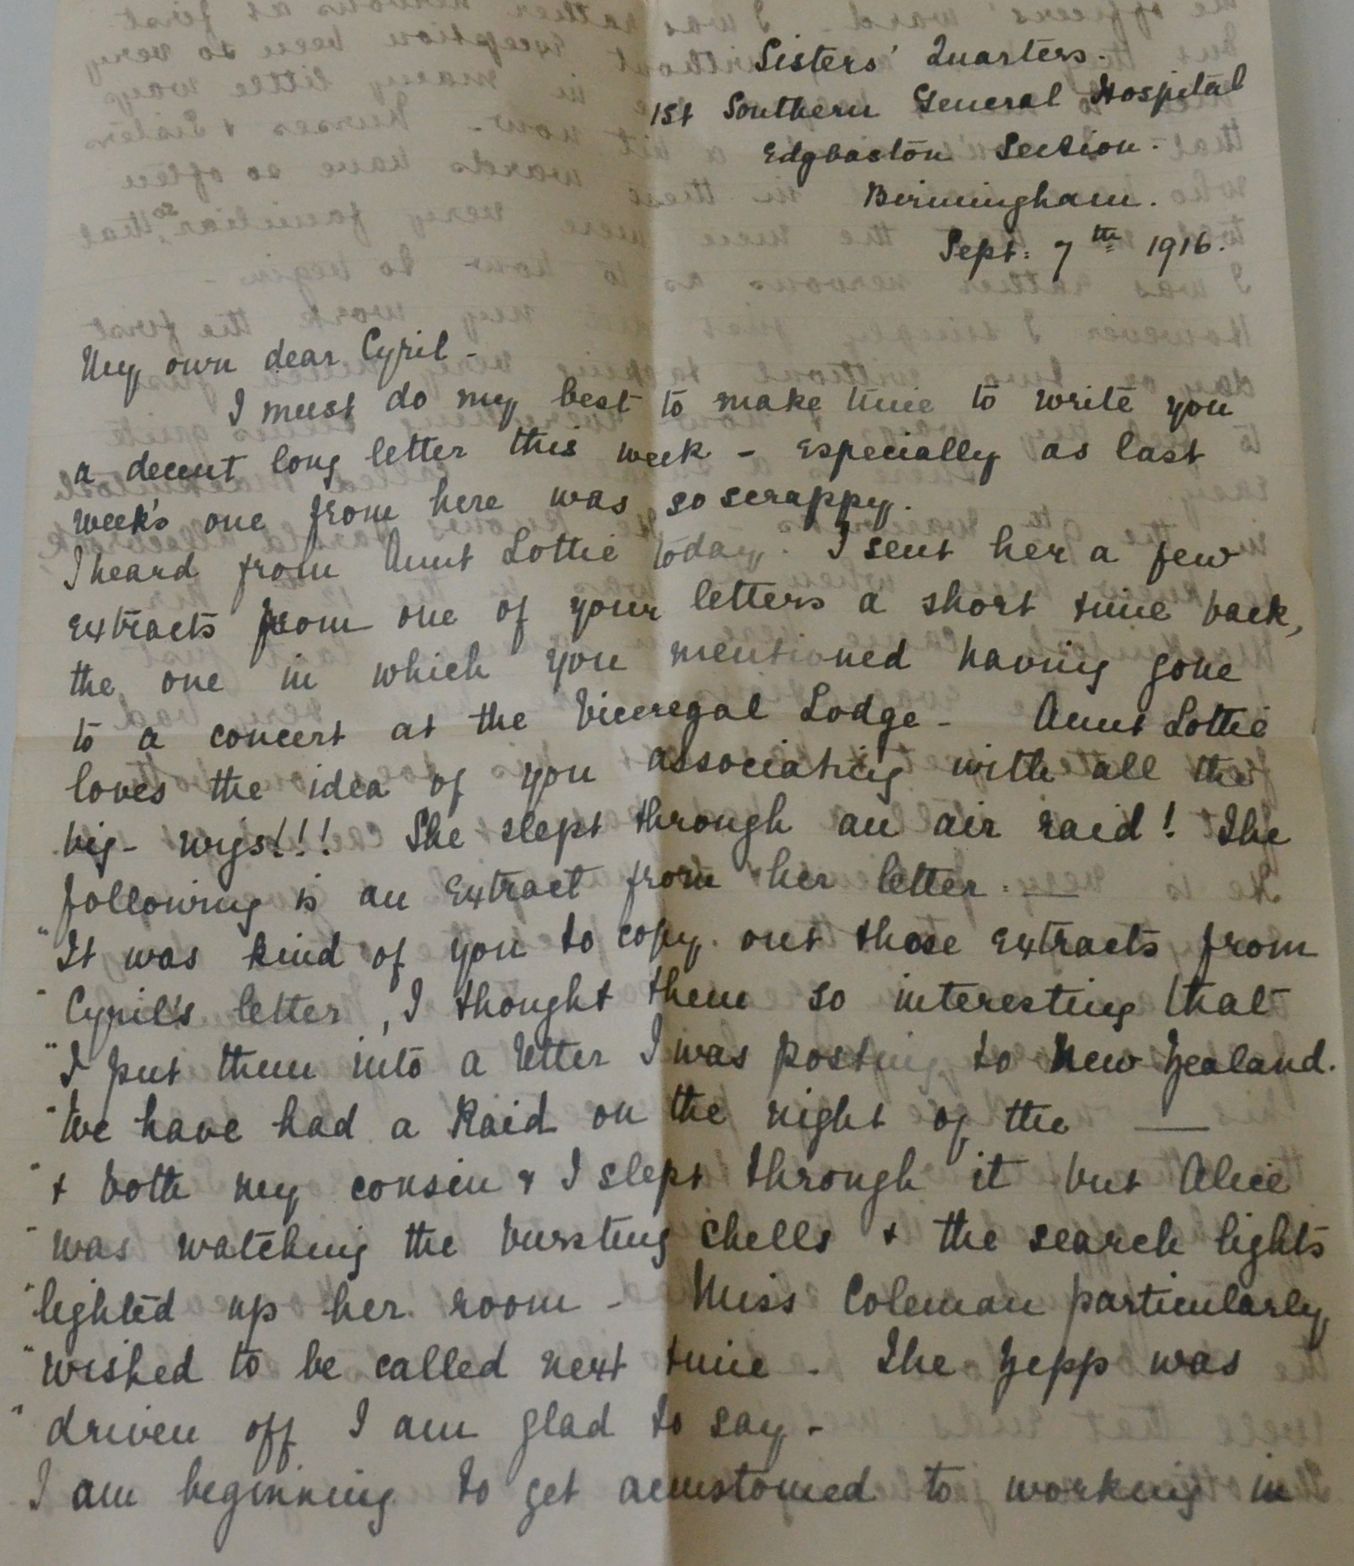 Sisters' Quarters.
1st Southern General Hospital
Edgbaston Section.
Birmingham.
Sept: 7th 1916.
My own dear Cyril -
I must do my best to make time to write you
a decent long letter this week - especially as last
week's one from here was so scrappy.
I heard from Aunt Lottie today. I sent her a few
extracts from one of your letters a short time back,
the one in which you mentioned having gone
to a concert at the Viceregal Lodge - Aunt Lottie
loves the idea of you associating with all the
big-wigs!!! She slept through an air raid! The
following is an extract from her letter. —
"It was kind of you to copy out those extracts from
"Cyril's letter, I thought them so interesting that
"I put them into a letter I was posting to New Zealand.
"We have had a Raid on the night of the —
"+ both my cousin + I slept through it but Alice
"was watching the bursting shells + the search lights
"lighted up her room - Miss Coleman particularly
"wished to be called next time - The Zepp was
"driven off I am glad to say -
I am beginning to get accustomed to working in